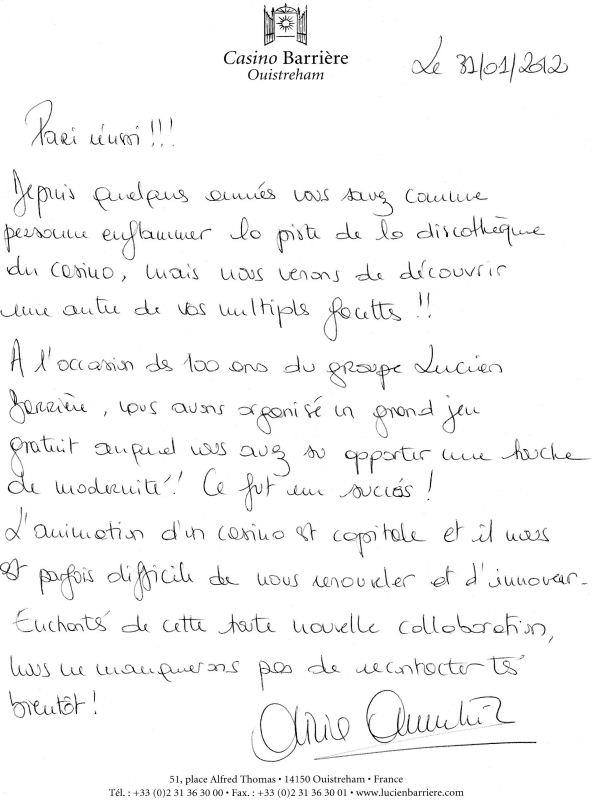 Casino Barrière
Ouistreham
Le 31/01/2012
Pari réussi !!!
Depuis quelques années vous savez comme
personne enflammer la piste de la discothèque
du casino, mais nous venons de découvrir
une autre de vos multiples facettes !!
A l'occasion des 100 ans du groupe Lucien
Barrière, nous avons organisé un grand jeu
gratuit auquel vous avez su apporter une touche
de modernité ! Ce fut un succès !
L'animation d'un casino est capitale et il nous
est parfois difficile de nous renouveler et d'innover.
Enchantés de cette toute nouvelle collaboration,
nous ne manquerons pas de recontacter très
bientôt !
51, place Alfred Thomas • 14150 Ouistreham • France
Tél. : +33 (0)2 31 36 30 00 • Fax. : +33 (0)2 31 36 30 01 • www.lucienbarriere.com